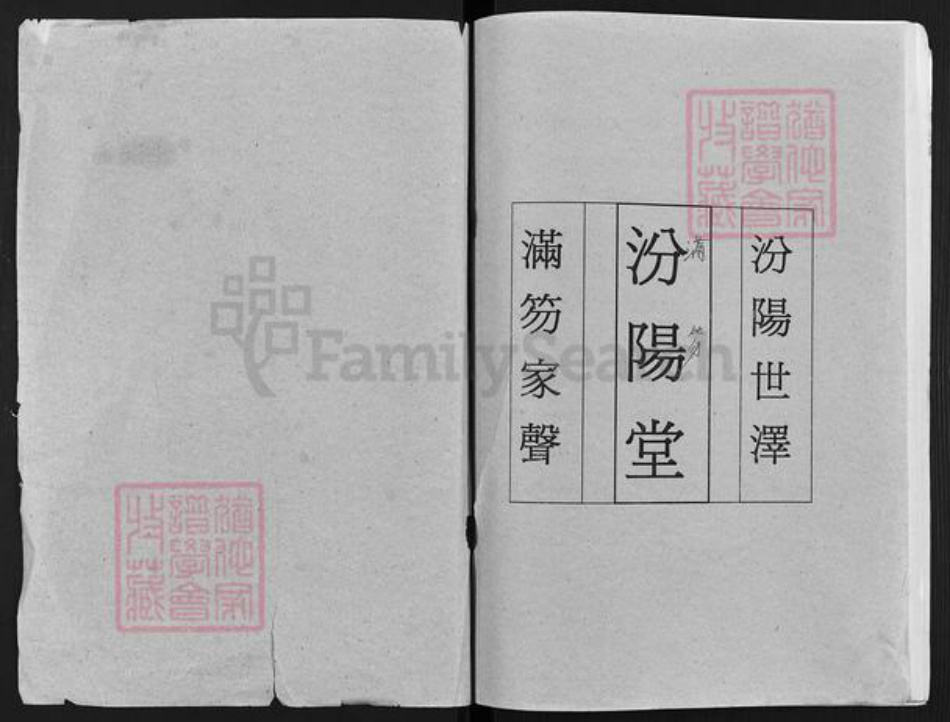 汾陽世澤
汾陽堂
滿
笏
滿笏家聲
猶他家
譜學會
收藏
猶他家
譜學會
收藏
FamilySearch